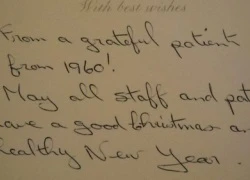 With best wishes
From a grateful patient
from 1960!
May all staff and pat
have a good Christmas a
healthy New Year.